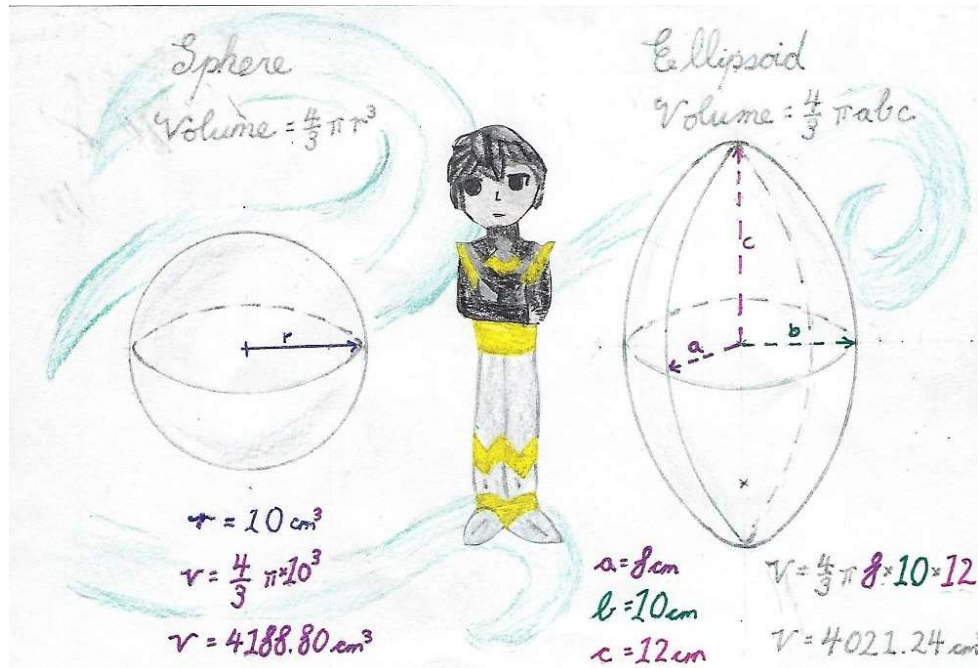 Sphere
Volume = 4/3 π r³
r
r = 10 cm³
V = 4/3 π × 10³
V = 4188.80 cm³
Ellipsoid
Volume = 4/3 π a b c
c
a
b
a = 8 cm
b = 10 cm
c = 12 cm
V = 4/3 π 8 × 10 × 12
V = 4021.24 cm³